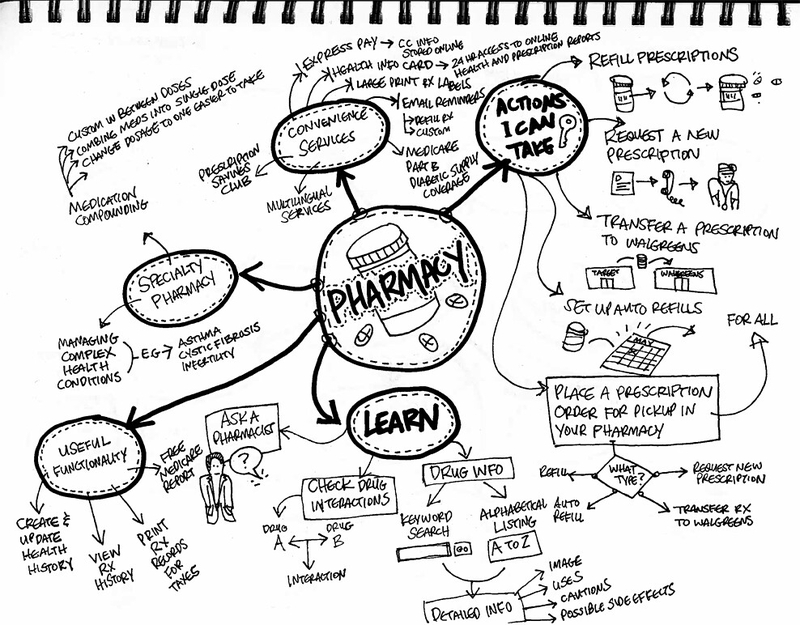 EXPRESS PAY → CC INFO
STORED ONLINE
HEALTH INFO CARD → 24 HR ACCESS TO ONLINE
HEALTH AND PRESCRIPTION REPORTS
LARGE PRINT RX LABELS
EMAIL REMINDERS
REFILL RX
CUSTOM
CONVENIENCE
SERVICES
MEDICARE
PART B
DIABETIC SUPPLY
COVERAGE
PRESCRIPTION
SAVINGS
CLUB
MULTILINGUAL
SERVICES
CUSTOM IN BETWEEN DOSES
COMBINING MEDS INTO SINGLE DOSE
CHANGE DOSAGE TO ONE EASIER TO TAKE
MEDICATION
COMPOUNDING
SPECIALTY
PHARMACY
MANAGING
COMPLEX
HEALTH
CONDITIONS
E.G.
ASTHMA
CYSTIC FIBROSIS
INFERTILITY
PHARMACY
ACTIONS
I CAN
TAKE
REFILL PRESCRIPTIONS
REQUEST A NEW
PRESCRIPTION
TRANSFER A PRESCRIPTION
TO WALGREENS
TARGET
WALGREENS
SET UP AUTO REFILLS
MAY
FOR ALL
PLACE A PRESCRIPTION
ORDER FOR PICKUP IN
YOUR PHARMACY
WHAT
TYPE?
REFILL
AUTO
REFILL
REQUEST NEW
PRESCRIPTION
TRANSFER RX
TO WALGREENS
USEFUL
FUNCTIONALITY
FREE
MEDICARE
REPORT
CREATE &
UPDATE
HEALTH
HISTORY
VIEW
RX
HISTORY
PRINT
RX
RECORDS
FOR
TAXES
LEARN
ASK A
PHARMACIST
?
CHECK DRUG
INTERACTIONS
DRUG
A
DRUG
B
INTERACTION
DRUG INFO
KEYWORD
SEARCH
GO
ALPHABETICAL
LISTING
A TO Z
DETAILED INFO
IMAGE
USES
CAUTIONS
POSSIBLE SIDE EFFECTS